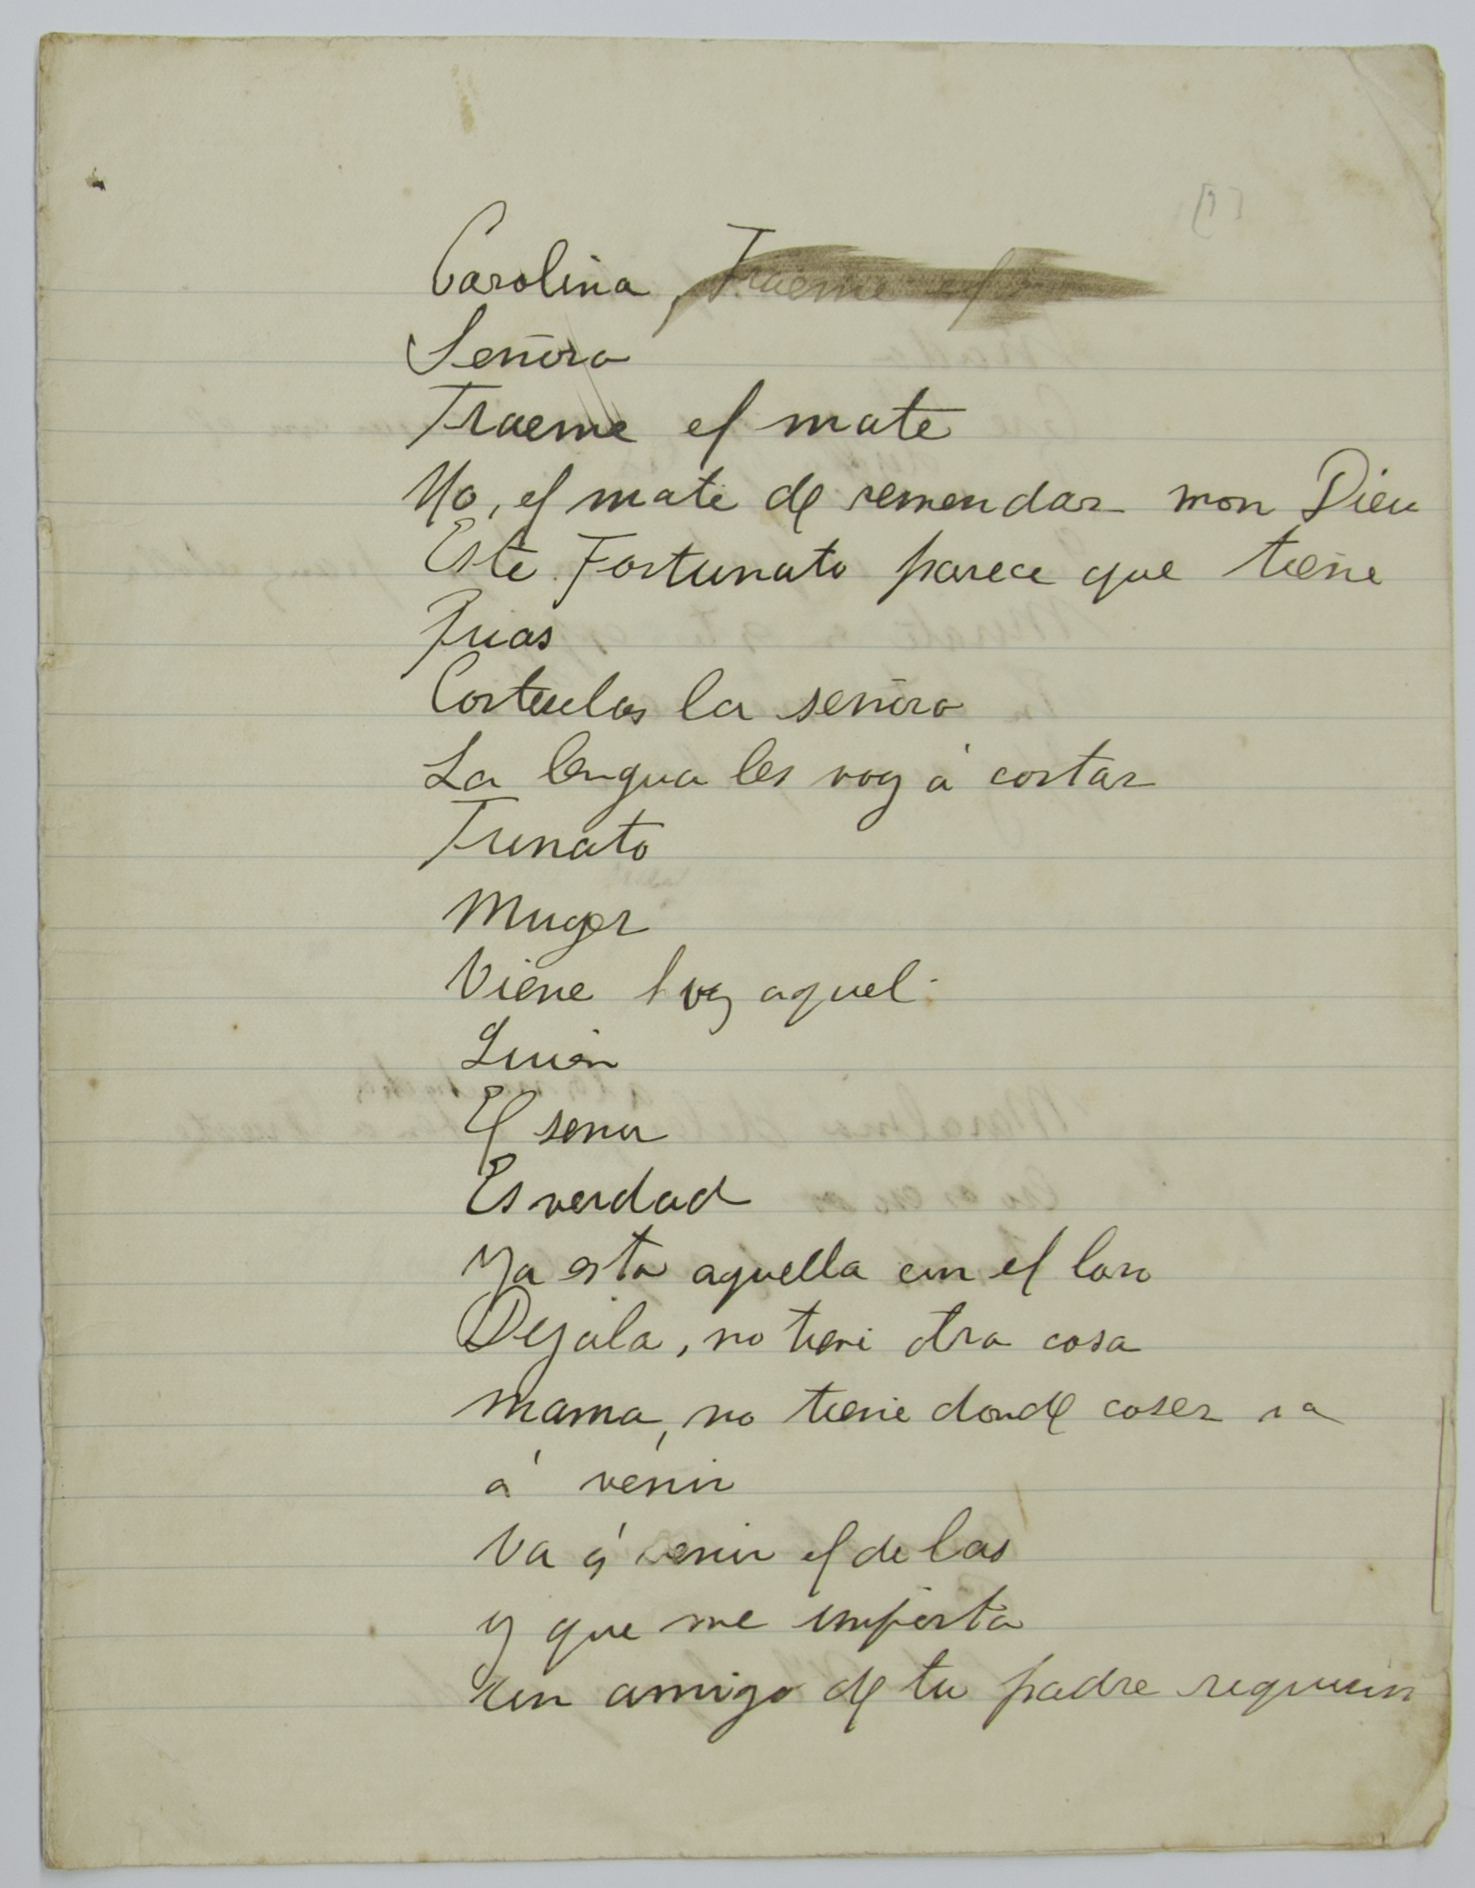 [1]
Carolina, Traeme el
Señora
Traeme el mate
No, el mate de remendar mon Dieu
Este Fortunato parece que tiene
puas
Corteselas la señora
La lengua les voy á cortar
Funato
Muger
Viene hoy aquel
Quien
El señor
Es verdad
Ya esta aquella con el loro
Dejala, no tiene otra cosa
mama, no tiene donde coser va
á venir
Va á venir el de las
y que me importa
un amigo de tu padre